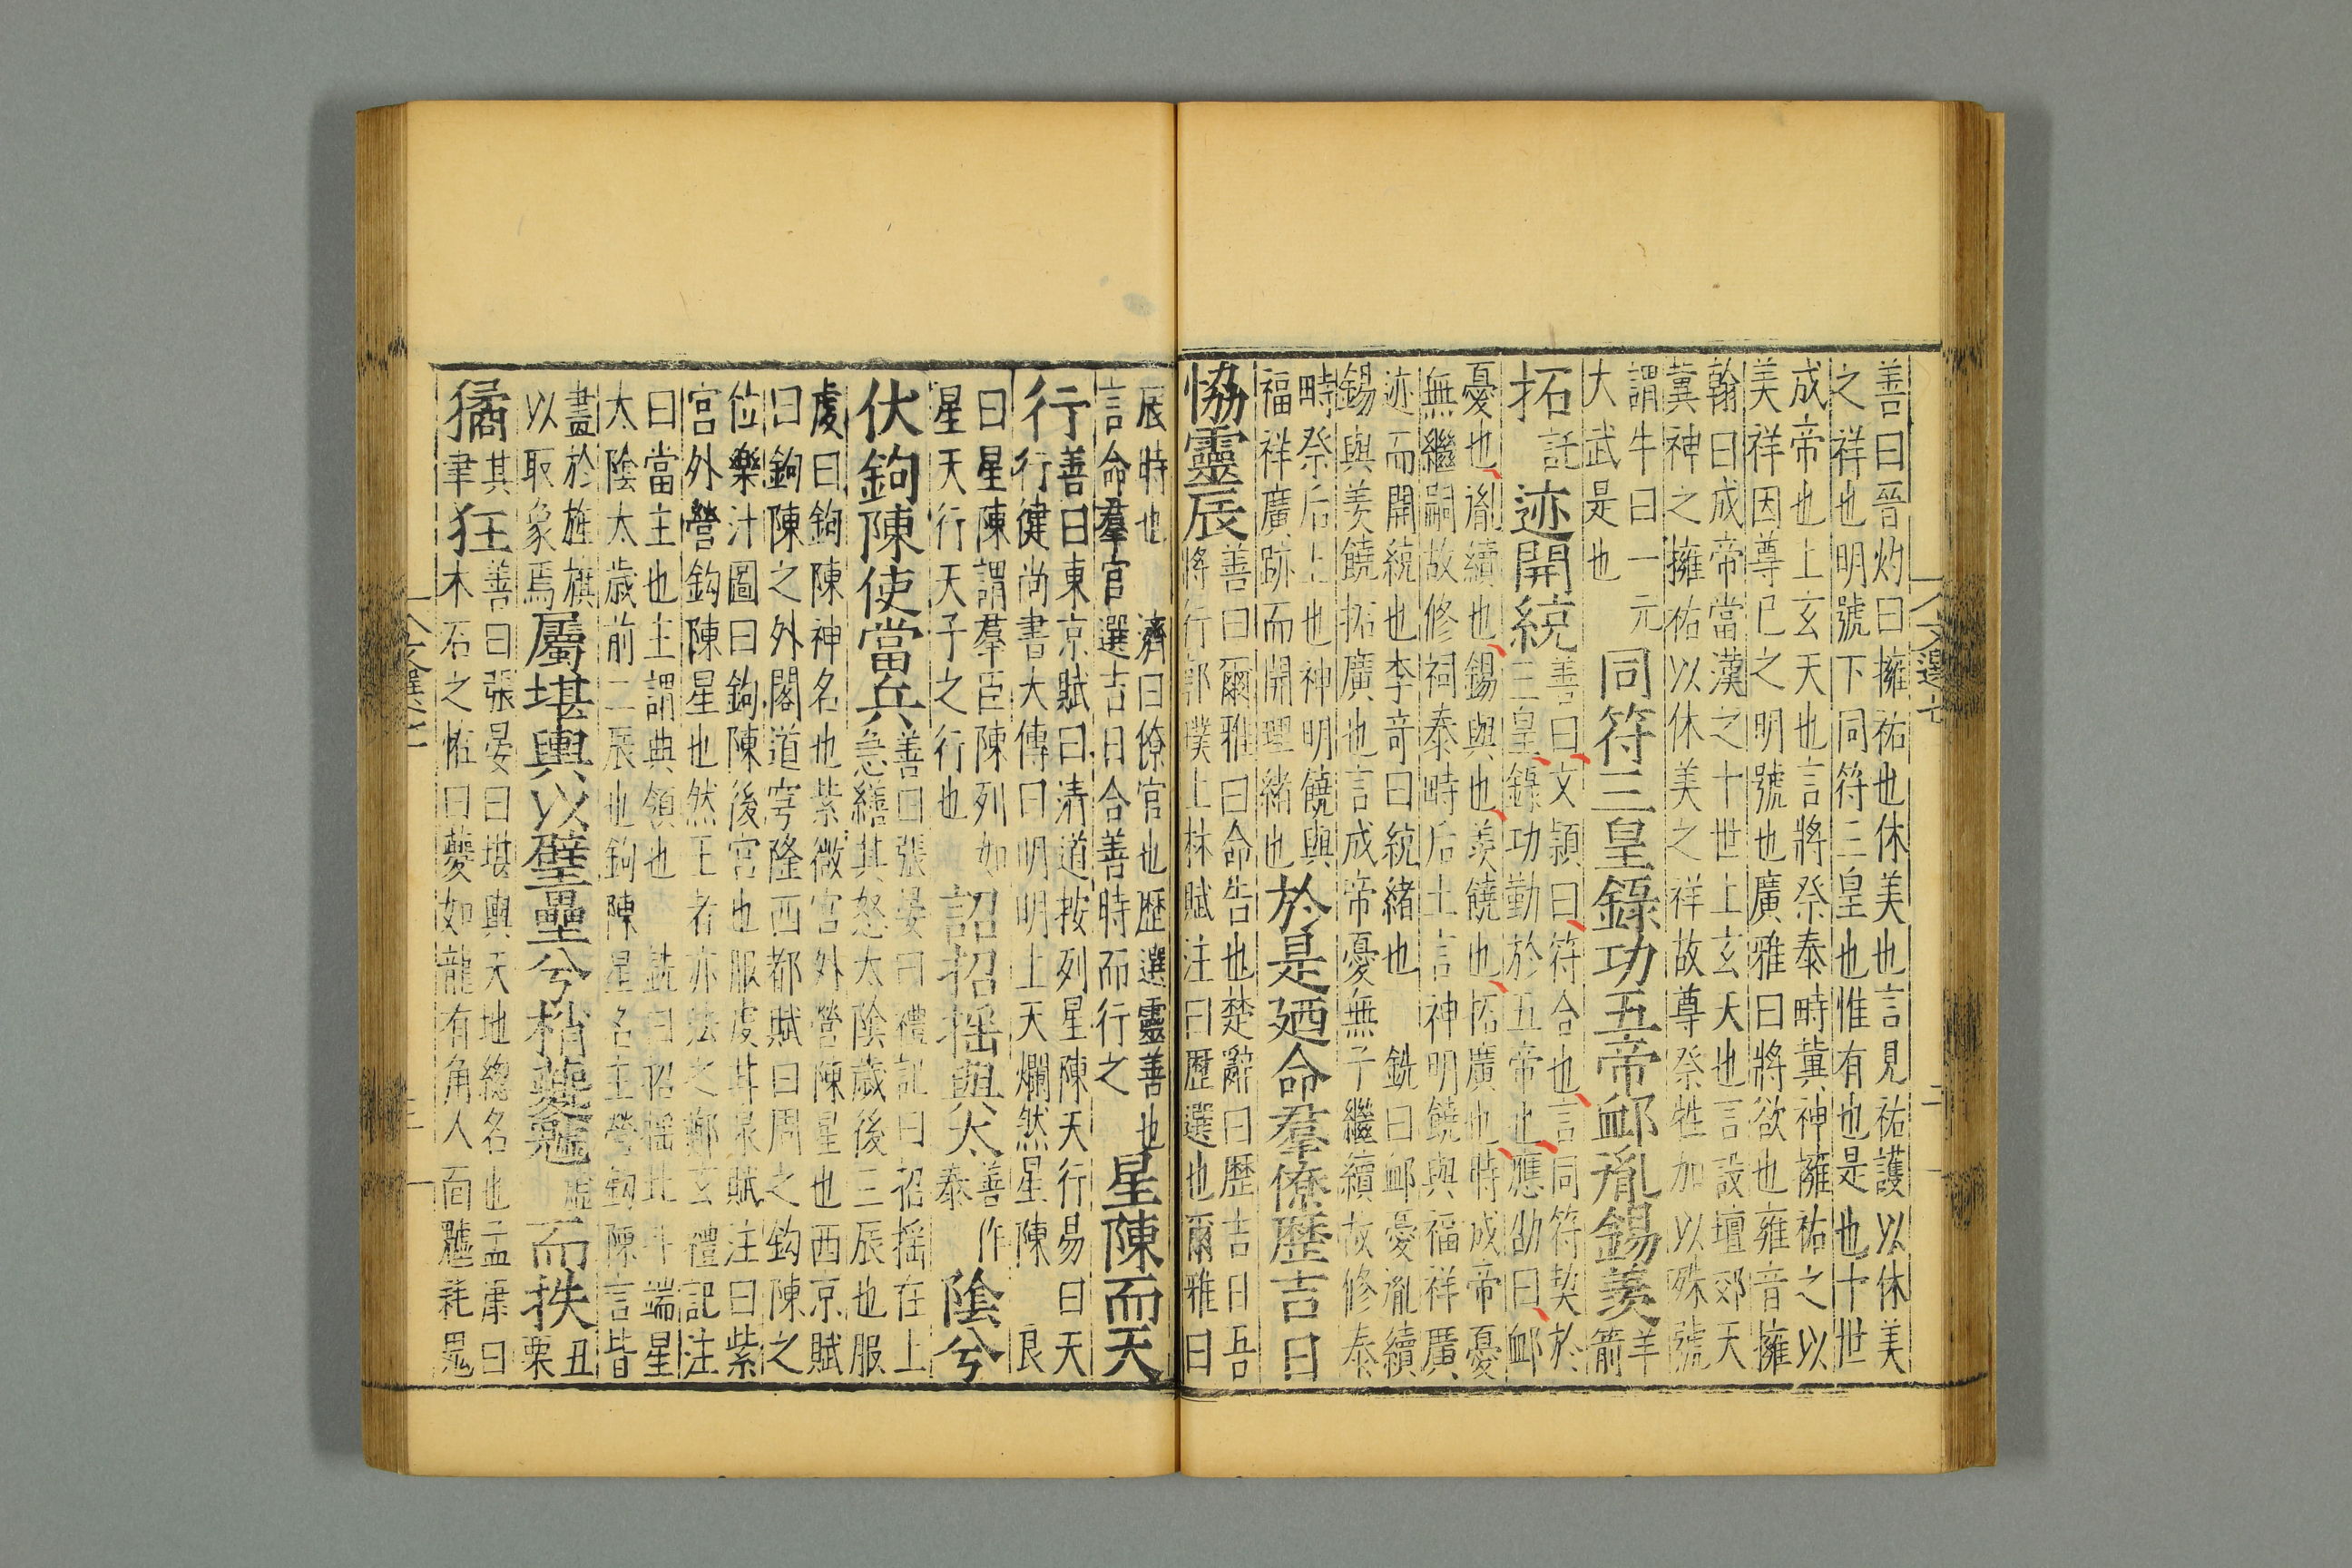 善曰晉灼曰擁祐也休美也言見祐護以休美
之祥也明號下同符三皇也惟有也是也十世
成帝也上玄天也言將祭泰畤冀神擁祐之以
美祥因尊已之明號也廣雅曰將欲也雍音擁
翰曰成帝當漢之十世上玄天也言設壇郊天
冀神之擁祐以休美之祥故尊祭牲加以殊號
謂牛曰一元
大武是也
同符三皇錄功五帝卹胤錫羨
羊
箭
拓
託
迹開統
善曰文頴曰符合也言同符契於
三皇錄功勤於五帝也應劭曰卹
憂也胤續也錫與也羨饒也拓廣也時成帝憂
無繼嗣故修祠泰畤后土言神明饒與福祥廣
迹而開統也李竒曰統緒也 銑曰卹憂胤續
錫與羨饒拓廣也言成帝憂無子繼續故修泰
畤祭后土也神明饒與
福祥廣跡而開理緒也
於是廼命羣僚歷吉日
協靈辰
善曰爾雅曰命告也楚辭曰歷吉日吾
將行郭璞上林賦注曰歷選也爾雅曰
辰時也 濟曰僚官也歷選靈善也
言命羣官選吉日合善時而行之
星陳而天
行
善曰東京賦曰清道按列星陳天行易曰天
行健尚書大傳曰明明上天爛然星陳 良
曰星陳謂羣臣陳列如
星天行天子之行也
詔招搖與太
善作
泰
陰兮
伏鉤陳使當兵
善曰張晏曰禮記曰招搖在上
急繕其怒太陰歲後三辰也服
虔曰鉤陳神名也紫微宮外營陳星也西京賦
曰鉤陳之外閣道穹隆西都賦曰周之鉤陳之
位樂汁圖曰鉤陳後宮也服虔甘泉賦注曰紫
宮外營鈎陳星也然王者亦法之鄭玄禮記注
曰當主也主謂典領也 銑曰招搖北斗端星
太陰太歲前二辰也鉤陳星名主營鉤陳言皆
畫於旌旗
以取象焉
屬堪輿以壁壘兮梢夔魖
虛
而抶
丑
栗
獝
其
聿
狂
善曰張晏曰堪輿天地緫名也孟康曰
木石之恠曰夔如龍有角人面魖耗鬼
文選七
二